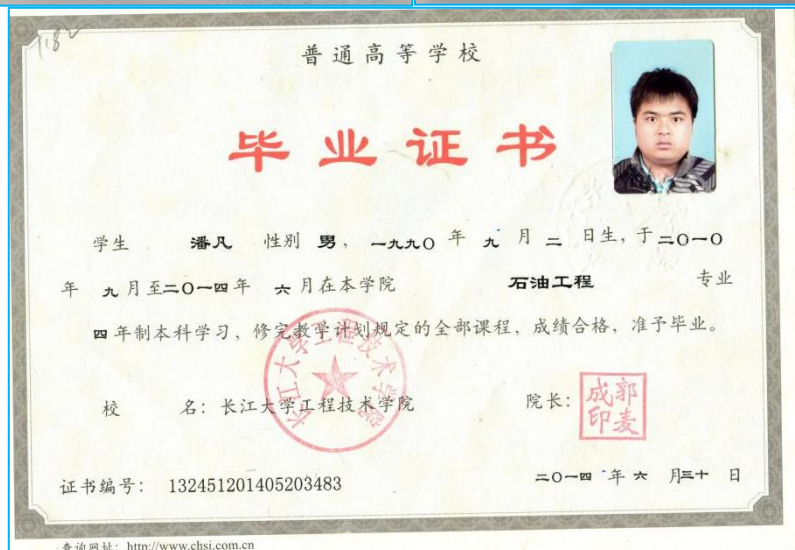 1182
普通高等学校
毕业证书
学生 潘凡 性别 男， 一九九〇 年 九 月 二 日生，于二〇一〇
年 九月至二〇一四年 六 月在本学院 石油工程 专业
四年制本科学习，修完教学计划规定的全部课程，成绩合格，准予毕业。
长江大学工程技术学院
校 名：长江大学工程技术学院 院长：
成郭
印麦
证书编号： 132451201405203483 二〇一四 年 六 月三十 日
查询网址：http://www.chsi.com.cn